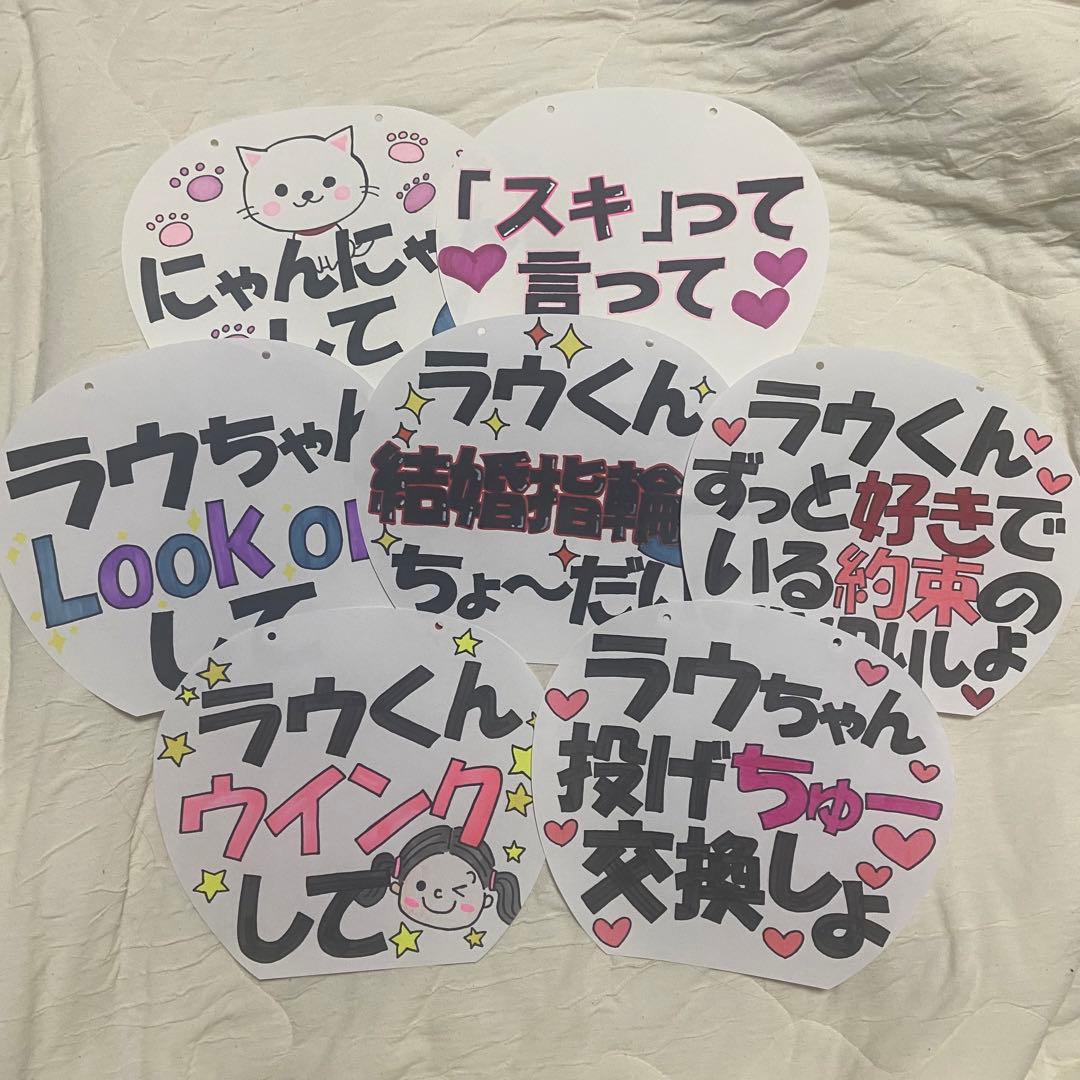 にゃんにゃ
して
「スキ」って
言って
ラウちゃん
Look on
して
ラウくん
結婚指輪
ちょ〜だい
ラウくん
ずっと好きで
いる約束の
しよ
ラウくん
ウインク
して
ラウちゃん
投げちゅー
交換しよ